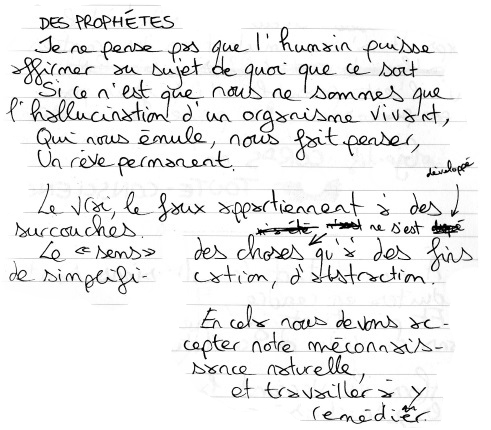 DES PROPHÉTES
Je ne pense pas que l'humain puisse
affirmer au sujet de quoi que ce soit
Si ce n'est que nous ne sommes que
l'hallucination d'un organisme vivant,
Qui nous émule, nous fait penser,
Un rêve permanent.
développé
Le vrai, le faux appartiennent à des
surcouches. ne s'est
Le "sens" des choses qu'à des fins
de simplifi- cation, d'abstraction.
En cela nous devons ac-
cepter notre méconnais-
sance naturelle,
et travailler à y
remédier.